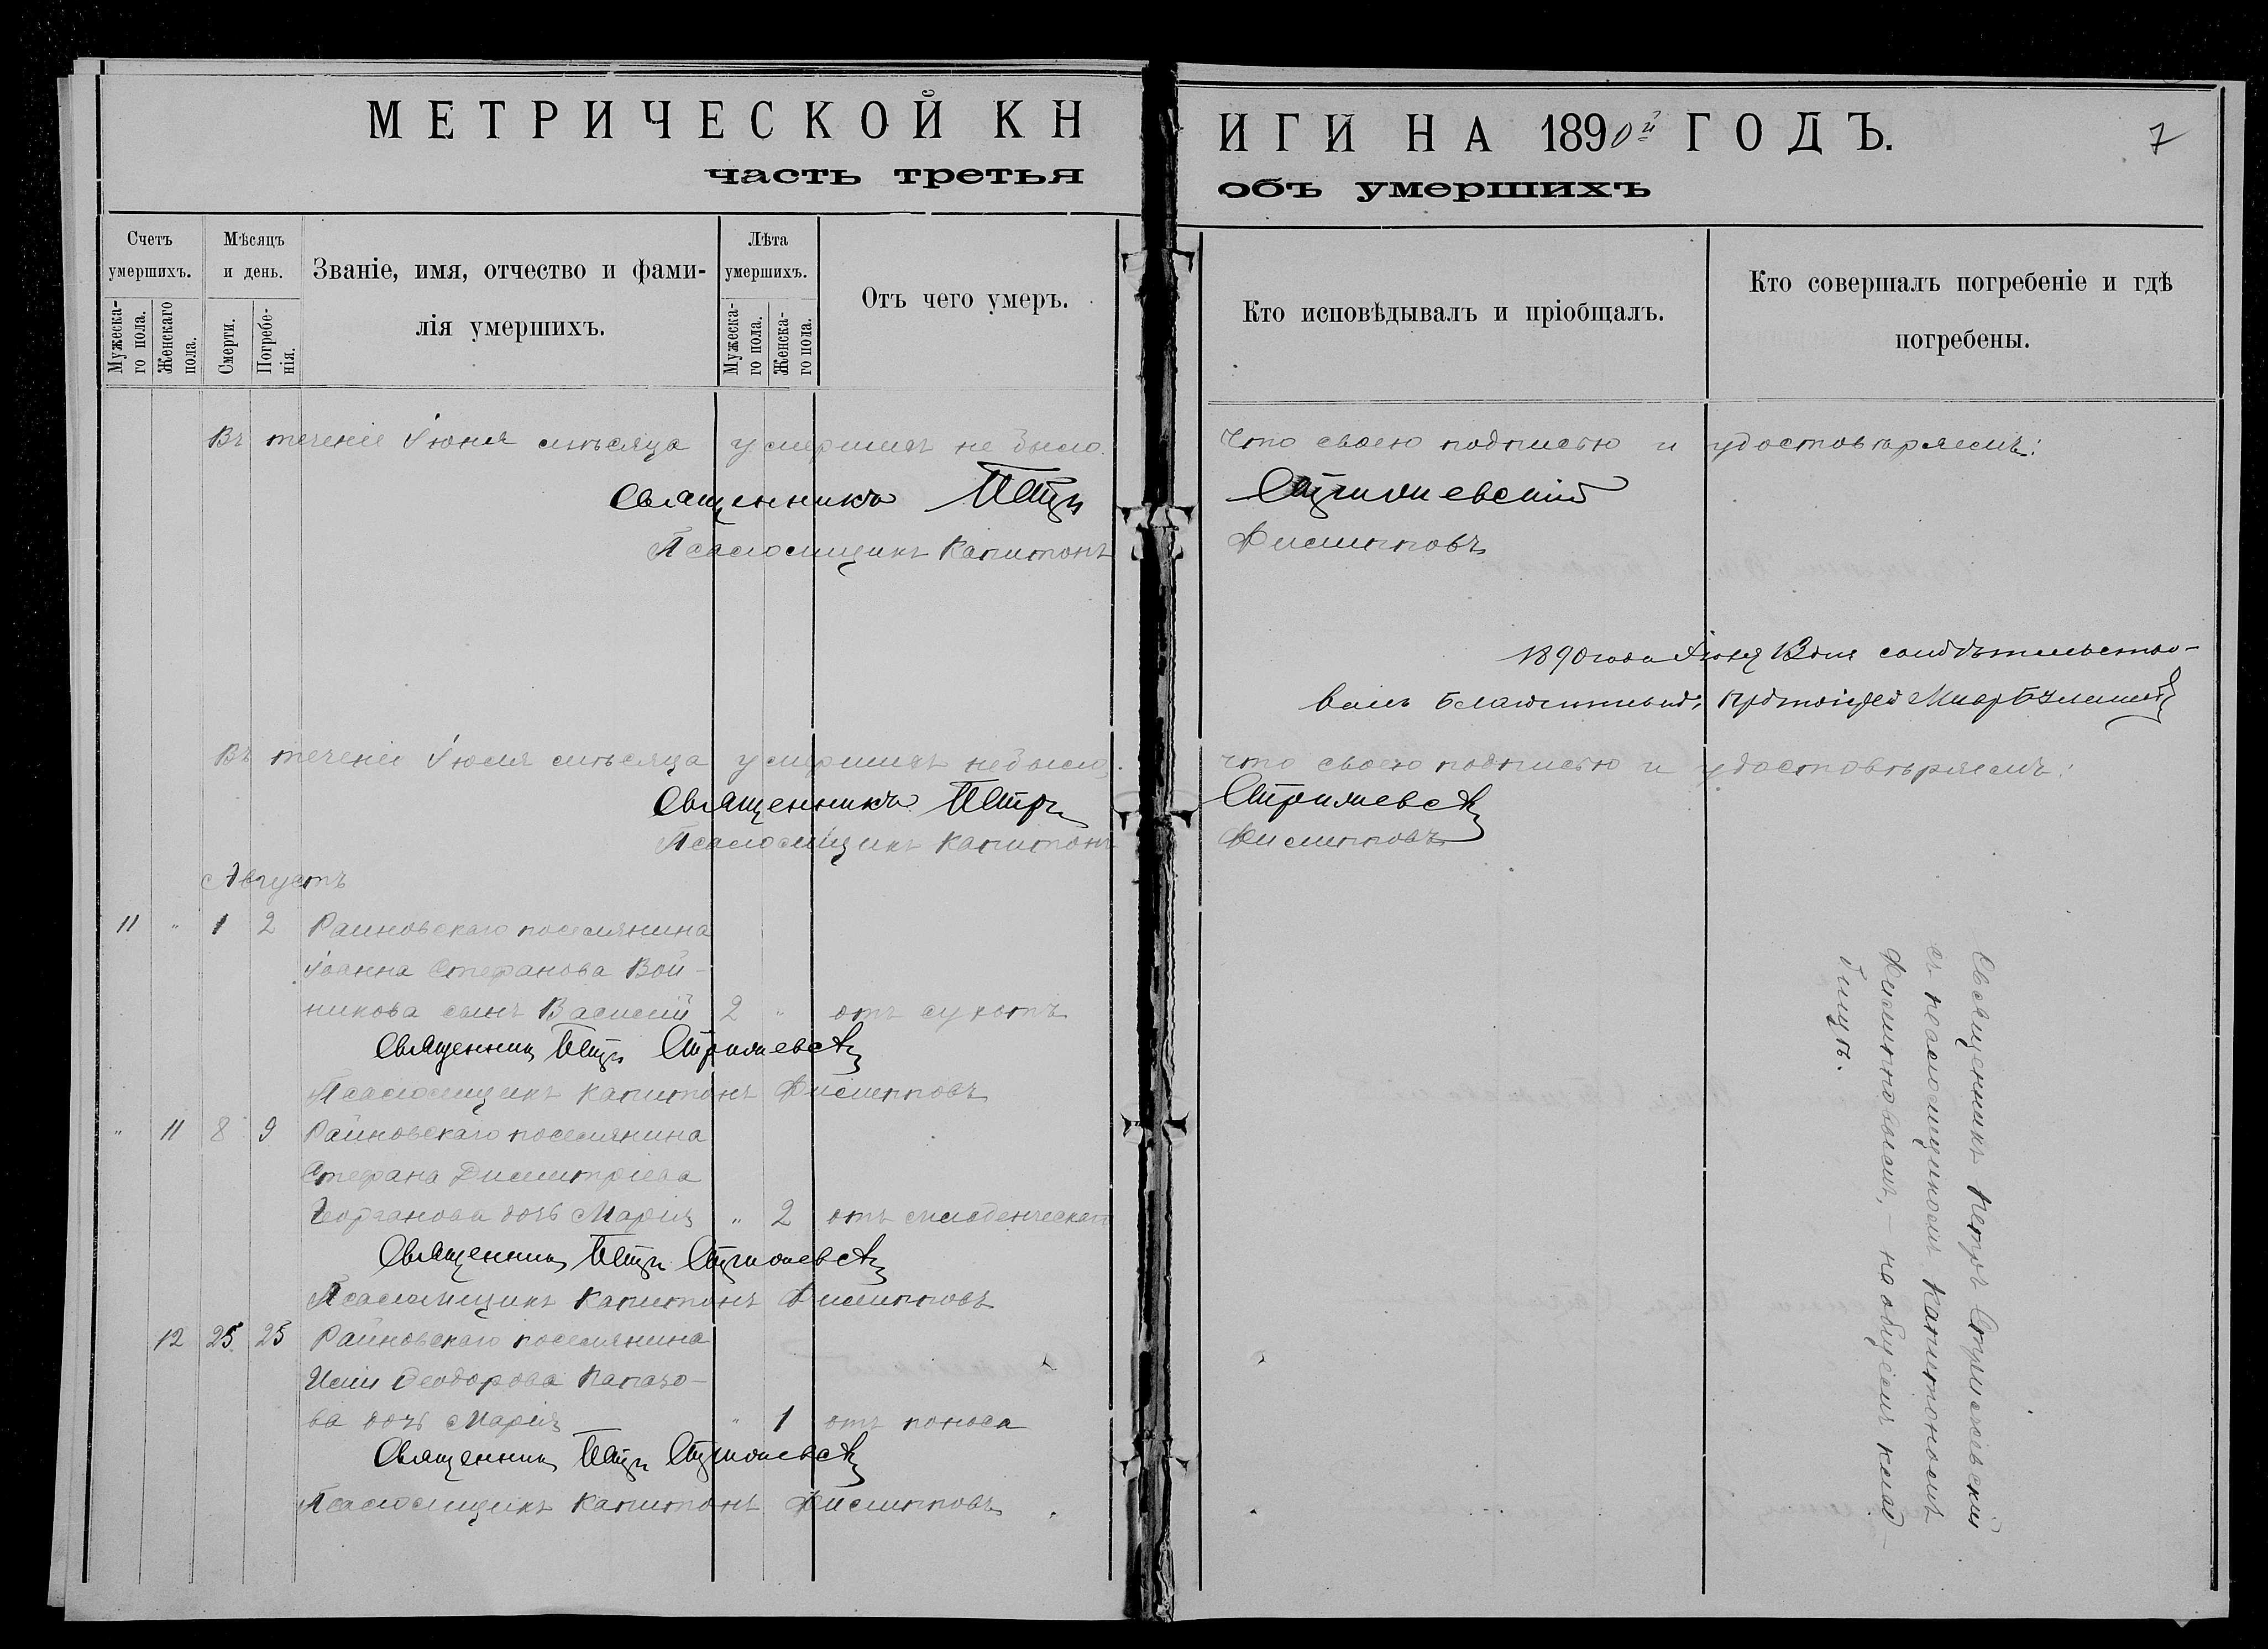 МЕТРИЧЕСКОЙ КНИГИ НА 1890й ГОДЪ.
7
часть третья объ умершихъ
Счетъ умершихъ.
Мужескаго пола.
Женскаго пола.
Мѣсяцъ и день.
Смерти.
Погребенія.
Званіе, имя, отчество и фами-
лія умершихъ.
Лѣта умершихъ.
Мужескаго пола.
Женскаго пола.
Отъ чего умеръ.
Кто исповѣдывалъ и пріобщалъ.
Кто совершалъ погребеніе и гдѣ
погребены.
Въ теченіе Іюня мѣсяца умершихъ не было. Что своею подписью и удостовѣряемъ:
Священникъ Петръ Стрильевскій
Псаломщикъ Капитонъ Филипповъ
1890 года Іюля 12 дня свидѣтельство-
валъ Благочинный, Протоіерей
Въ теченіе Іюля мѣсяца умершихъ не было, что своею подписью и удостовѣряемъ:
Священникъ Петръ Стрильевскій
Псаломщикъ Капитонъ Филипповъ
Августъ
11 " 1 2 Раиновскаго поселянина
Іоанна Стефанова Вой-
никова сынъ Василій 2 " отъ сухотъ
Священникъ Петръ Стрильевскій
Псаломщикъ Капитонъ Филипповъ
" 11 8 9 Раиновскаго поселянина
Стефана Димитріева
дочь Марія " 2 отъ младенческаго
Священникъ Петръ Стрильевскій
Псаломщикъ Капитонъ Филипповъ
12 25 25 Раиновскаго поселянина
Иліи Ѳеодорова Папазо-
ва дочь Марія " 1 отъ поноса
Священникъ Петръ Стрильевскій
Псаломщикъ Капитонъ Филипповъ
Священникъ Петръ Стрильевскій
съ псаломщикомъ Капитономъ
Филипповымъ, – на общемъ клад-
бищѣ.